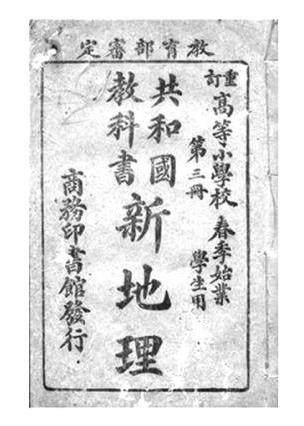 教育部審定
重訂高等小學校 春季始業 學生用
第三冊
共和國
教科書
新地理
商務印書館發行